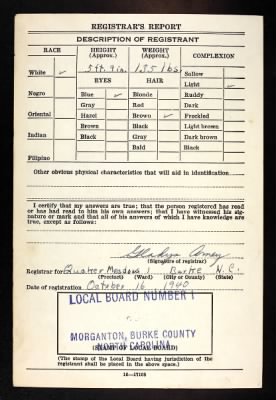 REGISTRAR'S REPORT
DESCRIPTION OF REGISTRANT
RACE HEIGHT (Approx.) WEIGHT (Approx.) COMPLEXION
5 ft. 9 in. 135 lbs. Sallow
White ✓ EYES HAIR Light ✓
Negro Blue ✓ Blonde Ruddy
Gray Red Dark
Oriental Hazel Brown ✓ Freckled
Brown Black Light brown
Indian Black Gray Dark brown
Bald Black
Filipino
Other obvious physical characteristics that will aid in identification
I certify that my answers are true; that the person registered has read or has had read to him his own answers; that I have witnessed his signature or mark and that all of his answers of which I have knowledge are true, except as follows:
Gladys
(Signature of registrar)
Registrar for Quaker Meadows 1 Burke N.C.
(Precinct) (Ward) (City or County) (State)
Date of registration October 16 1940
LOCAL BOARD NUMBER 1
MORGANTON, BURKE COUNTY
NORTH CAROLINA
(STAMP OF LOCAL BOARD)
(The stamp of the Local Board having jurisdiction of the registrant shall be placed in the above space.)
16—17105